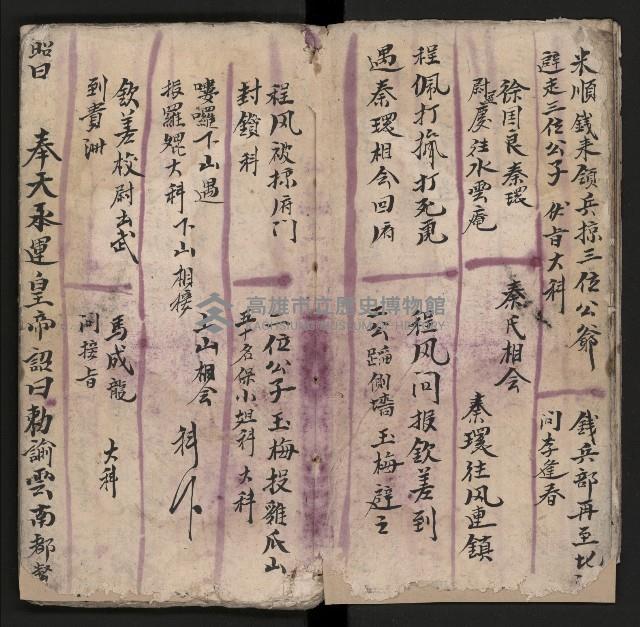 米順錢来領兵掠三位公爺
避走三位公子 伏旨大科
錢兵部再至
問李逢春
徐国良秦环
尉慶往水雲庵
秦氏相会
秦環往风連鎮
程佩打擂打死虎
遇秦環相会回府
程风问报欽差到
三公踰側墻玉梅避之
程风被掠府门
封鎖科
三位公子玉梅投雞爪山
五十名保小姐科 大科
嘍囉下山遇
报羅焜大科下山相接
上山相会
科介
欽差校尉去武
到貴洲
馬成龍
问接旨
大科
奉天承運皇帝詔曰勅諭雲南都督
昭曰
高雄市立歷史博物館
KAOHSIUNG MUSEUM OF HISTORY